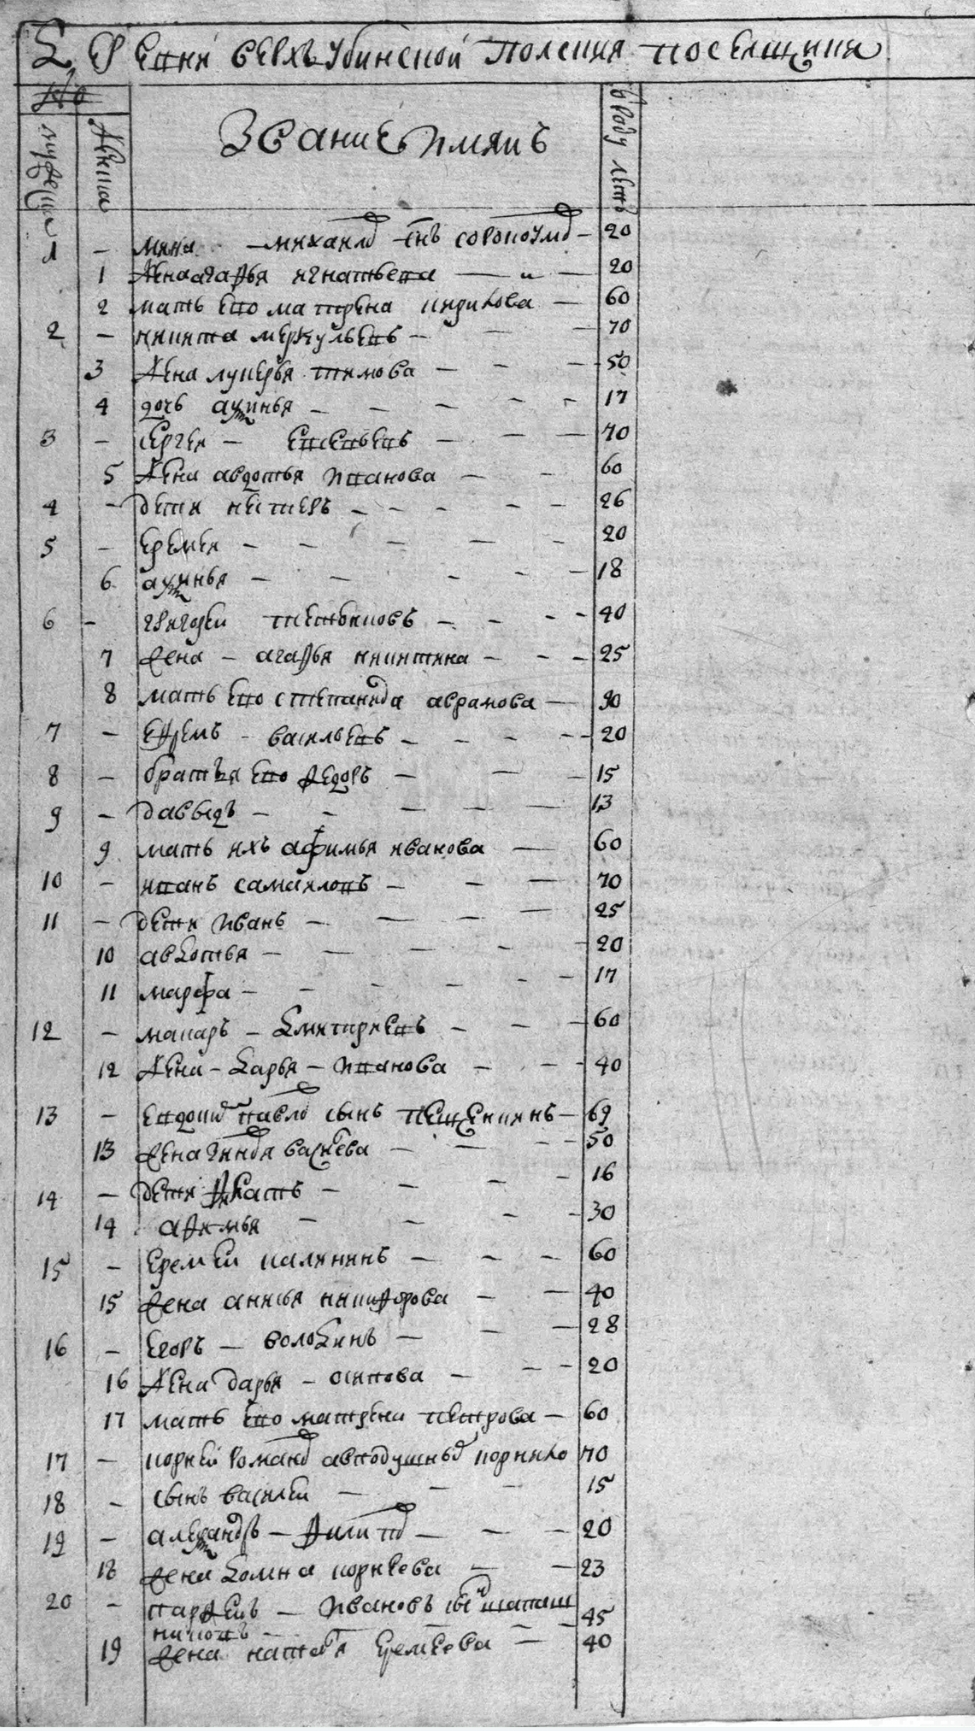 Деревни верхъ Убинской Поления поселщики
No
мужеска
Женска
Звание имянъ
в роду летъ
1 — мина — михаилов снъ 20
1 Жена агафья игнатьева — 20
2 мать ево матрена — 60
2 — никита меркульевъ — 70
3 Жена лукерья — 50
4 дочь аксинья — 17
3 — сергеи — евсевьевъ — 70
5 Жена авдотья иванова — 60
4 — дети нестеръ — 26
5 — еремеи — 20
6 аксинья — 18
6 — григореи — 40
7 жена — агафья никитина — 25
8 мать ево степанида аврамова — 90
7 — ефремъ — васильевъ — 20
8 — братья ево федоръ — 15
9 — давыдъ — 13
9 мать ихъ афимья иванова — 60
10 — иванъ самаиловъ — 70
11 — дети иванъ — 25
10 авдотья — 20
11 марфа — 17
12 — макаръ — дмитириевъ — 60
12 Жена — дарья — иванова — 40
13 — евдоким павлов сынъ — 69
13 жена васильева — 50
14 — дети — 16
14 афимья — 30
15 — еремеи калининъ — 60
15 жена анисья никифорова — 40
16 — егоръ — володинъ — 28
16 Жена дарья — осипова — 20
17 мать ево матрена петрова — 60
17 — корнеи романов 70
18 — сынъ василеи — 15
19 — александръ — филипов — 20
18 жена домна корнеева — 23
20 — парфенъ — ивановъ 45
19 жена наталья еремеева — 40